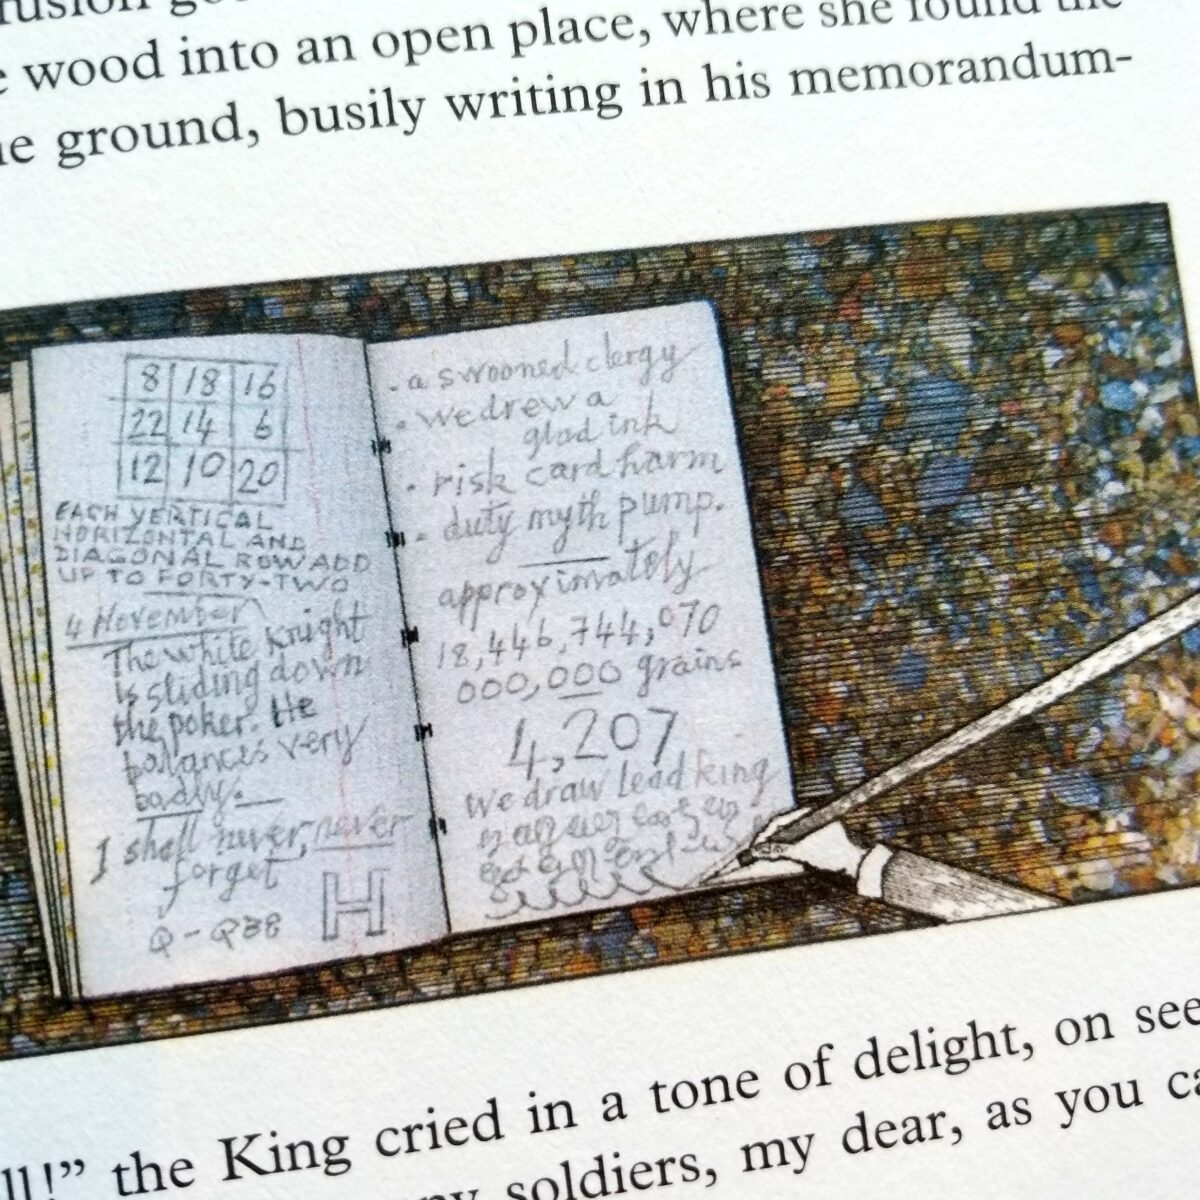 wood into an open place, where she found the
ground, busily writing in his memorandum-
8 18 16
22 14 6
12 10 20
EACH VERTICAL
HORIZONTAL AND
DIAGONAL ROW ADD
UP TO FORTY-TWO
4 November
The white Knight
is sliding down
the poker. He
balances very
badly.
I shall never, never
forget
H
. a swooned clergy
. we drew a
glad ink
. risk card harm
. duty myth pump.
approximately
18,446,744,070
000,000 grains
4,207
we draw lead king
ll!” the King cried in a tone of delight, on see
soldiers, my dear, as you ca